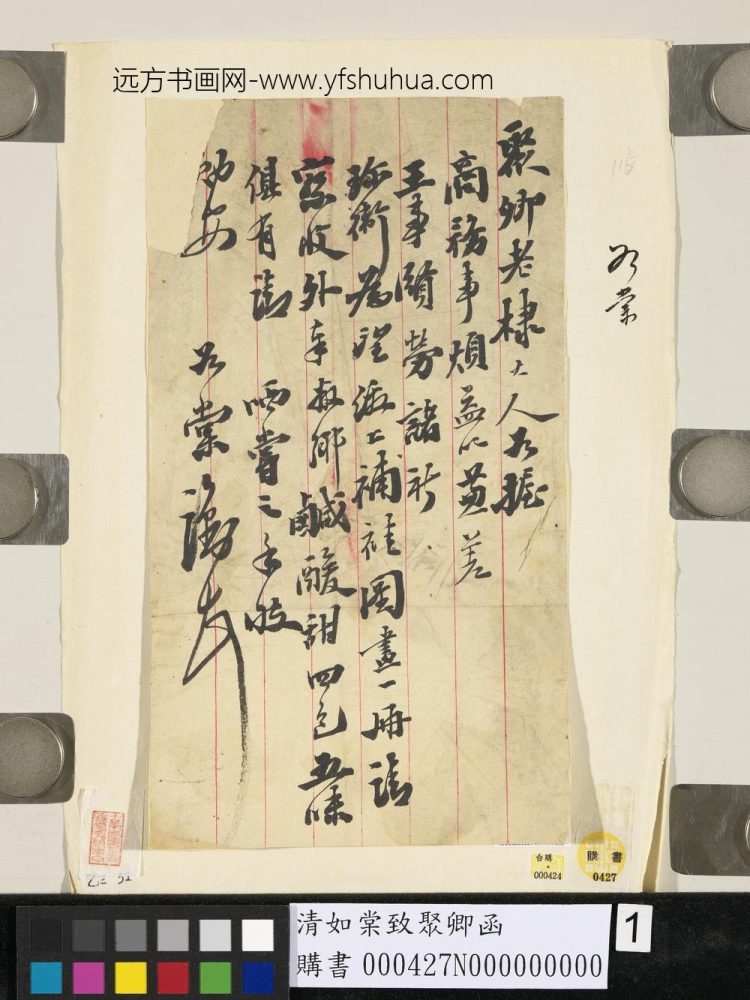 远方书画网-www.yfshuhua.com
如棠
聚卿老棣大人如握
商務事煩益以兼差
王事賢勞諸祈
珍衛為望繳上補褂圖畫一冊請
察收外奉叔卿鹹酸甜四包五味
俱有請
哂嘗之手
安
如棠
台購
000424
購書
0427
清如棠致聚卿函
購書 000427N000000000
1